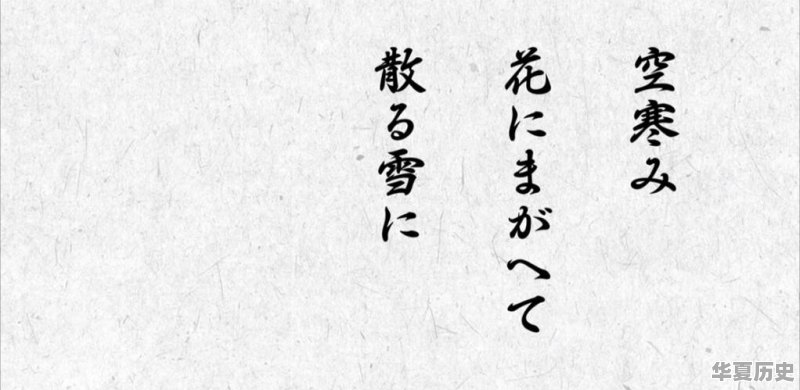 空寒み
花にまがへて
散る雪に
华夏历史